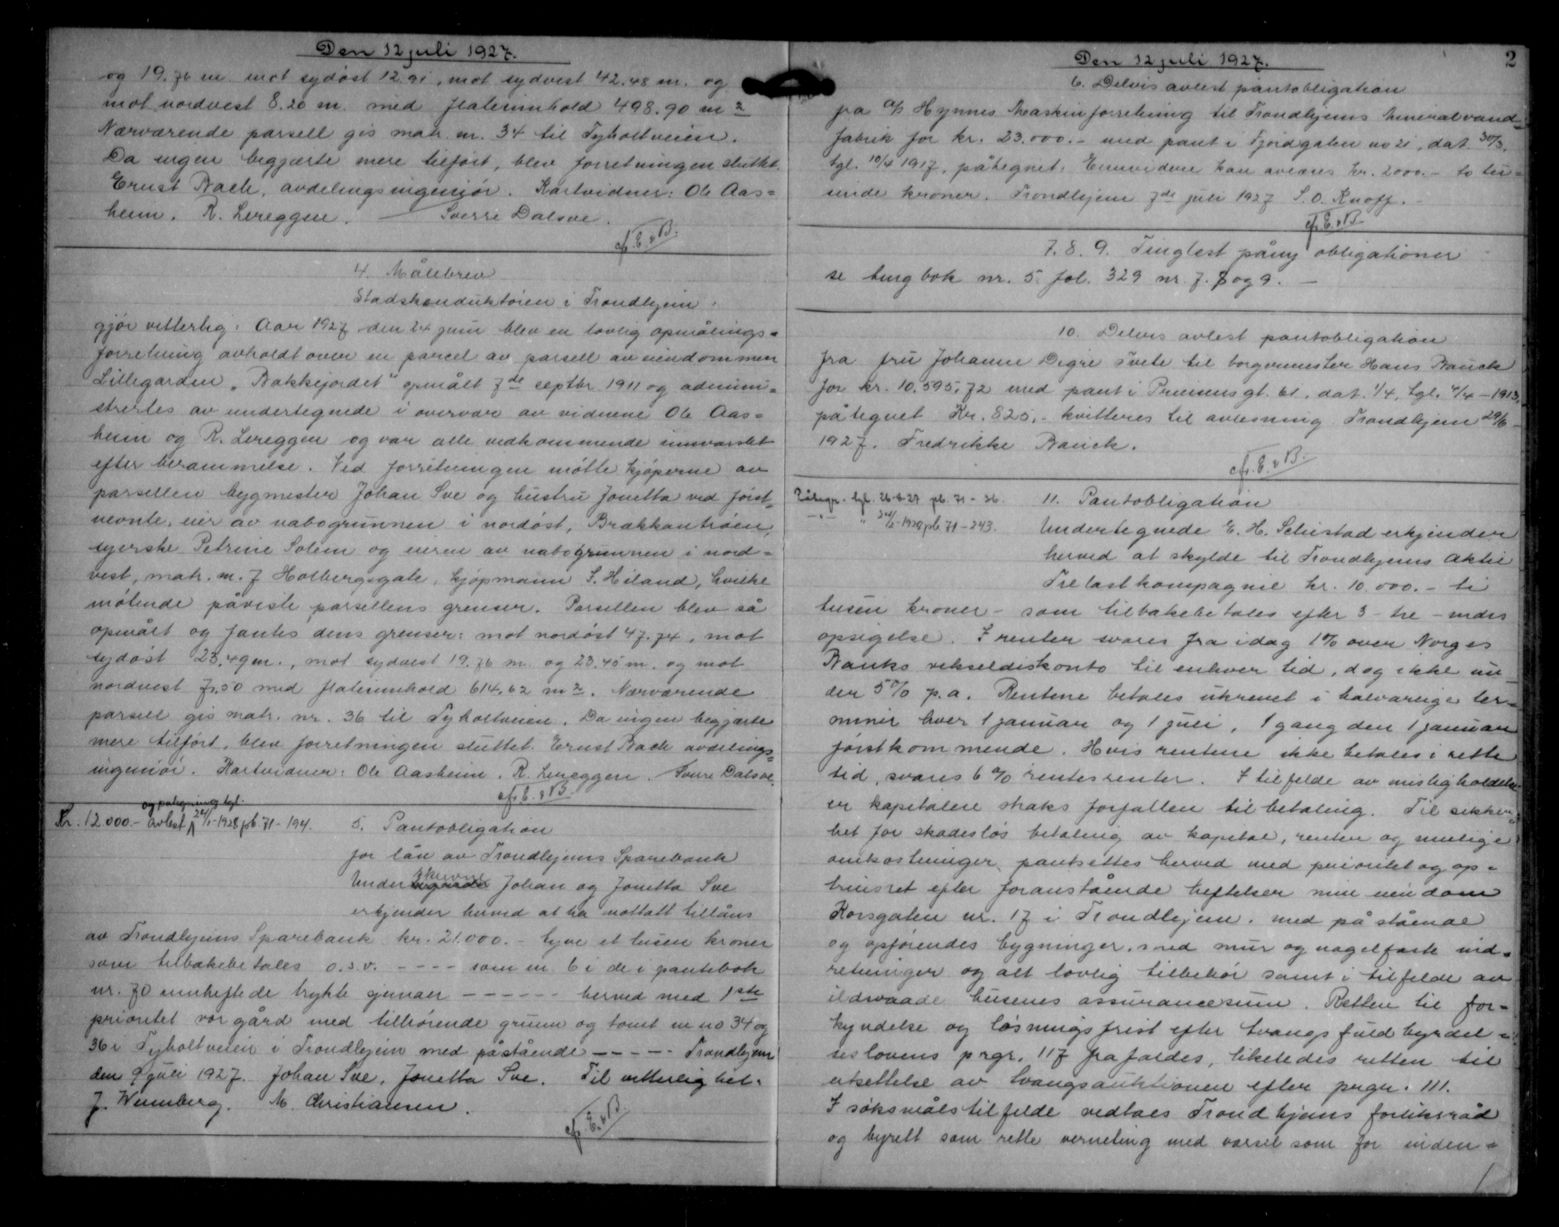 Den 12 juli 1927.
og 19.76 m mot sydöst 12.91, mot sydvest 42.48 m. og
mot nordvest 8.20 m. med flateinnhold 498.90 m2
Nærværende parsell gis matr. nr. 34 til Tyholtveien.
Da ingen begjærte mere tilført, blev forretningen sluttet.
Ernst Bach, avdelingsingeniør. Kartvidner: Ole Aas=
heim. R. Lereggen. Sverre Dalsve.
cfr. E. v B.
4. Målebrev
Stadskonduktøren i Trondhjem
gjør vitterlig: Aar 1927 den 24 juni blev en lovlig opmålings=
forretning avholdt over en parcel av parsell av eiendommen
Lillegården "Bakkejordet" opmålt 7de septbr 1911 og admini=
strertes av undertegnede i overvær av vidnene Ole Aas=
heim og R. Lereggen og var alle vedkommende innvarslet
efter berammelse. Ved forretningen møtte kjøperne av
parsellen bygmester Johan Sve og hustru Jonetta ved først=
nevnte, eier av nabogrunnen i nordøst, Brakkantrøen,
eyerske Petrine Solem og eieren av nabogrunnen i nord=
vest, matr. nr. 7 Holbergsgate, kjøpmann S. Hiland, hvilke
møtende påviste parsellens grenser. Parsellen blev så
opmålt og fantes dens grenser: mot nordöst 47.74, mot
sydöst 23.49 m., mot sydvest 19.76 m. og 23.45 m. og mot
nordvest 7.50 med flateinnhold 614.62 m2. Nærværende
parsell gis matr. nr. 36 til Tyholtveien. Da ingen begjærte
mere tilført, blev forretningen sluttet. Ernst Bach avdelings=
ingeniør. Kartvidner: Ole Aasheim. R. Lereggen. Sverre Dalsve.
cfr. E. v B
og påtegning tgl.
Kr. 12.000.- avlest 24/1-1928 pb. 71-194.
5. Pantobligation
for lån av Trondhjems Sparebank
Underskrevne Johan og Jonetta Sve
erkjender herved at ha mottatt tillåns
av Trondhjems Sparebank kr. 21.000.- tyve et tusen kroner
som tilbakebetales o.s.v. - - - - som nr. 6 i de i pantebok
nr. 70 innheftede trykte sjemaer - - - - - - herved med 1ste
prioritet vor gård med tilhørende grunn og tomt nr no 34 og
36 i Tyholtveien i Trondhjem med påstående - - - - - Trondhjem
den 9 juli 1927. Johan Sve, Jonetta Sve. Til vitterlighet:
J. Wennberg. M. Christiansen.
cfr. E. v B
2
Den 12 juli 1927.
6. Delvis avlest pantobligation
fra A/S Hynnes Maskinforretning til Trondhjems Mineralvand=
fabrik for kr. 23.000.- med pant i Fjordgaten no 21, dat. 30/3,
tgl. 10/4 1917, påtegnet: Ennvidere kan avleses kr. 2000.- to tu=
sende kroner. Trondhjem 7de juli 1927 S. O. Knoff.
cfr. E. v B
7. 8. 9. Tinglest påny obligationer
se tingbok nr. 5 fol. 329 nr 7. 8 og 9. -
10. Delvis avlest pantobligation
fra fru Johanne Digre Tvete til borgermester Hans Bauck
for kr. 10.595,72 med pant i Prinsensgt. 61, dat. 1/4, tgl. 4/4-1913,
påtegnet Kr. 825,- kvitteres til avlesning. Trondhjem 29/6-
1927. Fredrikke Bauck.
cfr. E. v B.
Påtegn. tgl. 26-8-27 pb. 71-26.
-"- " 24/2-1928 pb 71-243.
11. Pantobligation
Undertegnede E. H. Schistad erkjender
herved at skylde til Trondhjems Aktie
Trelastkompagnie kr. 10.000.- ti
tusen kroner - som tilbakebetales efter 3 - tre - mdrs
opsigelse. I renter svares fra idag 1% over Norges
Banks vekseldiskonto til enhver tid, dog ikke un=
der 5% p.a. Rentene betales ukrevet i halvaarlige ter=
miner hver 1 januar og 1 juli, 1 gang den 1 januar
førstkommende. Hvis rentene ikke betales i rette
tid, svares 6% rentesrenter. I tilfelde av misligholdelse
er kapitalen straks forfallen til betaling. Til sikker=
het for skadesløs betaling av kapital, renter og mulige
omkostninger pantsettes herved med prioritet og op=
trinsret efter foranstående heftelser min eiendom
Korsgaten nr. 17 i Trondhjem, med på stående
og opførendes bygninger, med mur og nagelfaste ind=
retninger og alt lovlig tilbehør samt i tilfelde av
ildsvaade husenes assurancesum. Retten til for=
kyndelse og løsningsfrist efter tvangsfuldbyrdel=
seslovens prgr. 117 frafaldes, likeledes retten til
utsettelse av tvangsauktionen efter prgr. 111.
I søksmålstilfelde vedtaes Trondhjems forliksråd
og byrett som rette verneting med varsel som for inden=